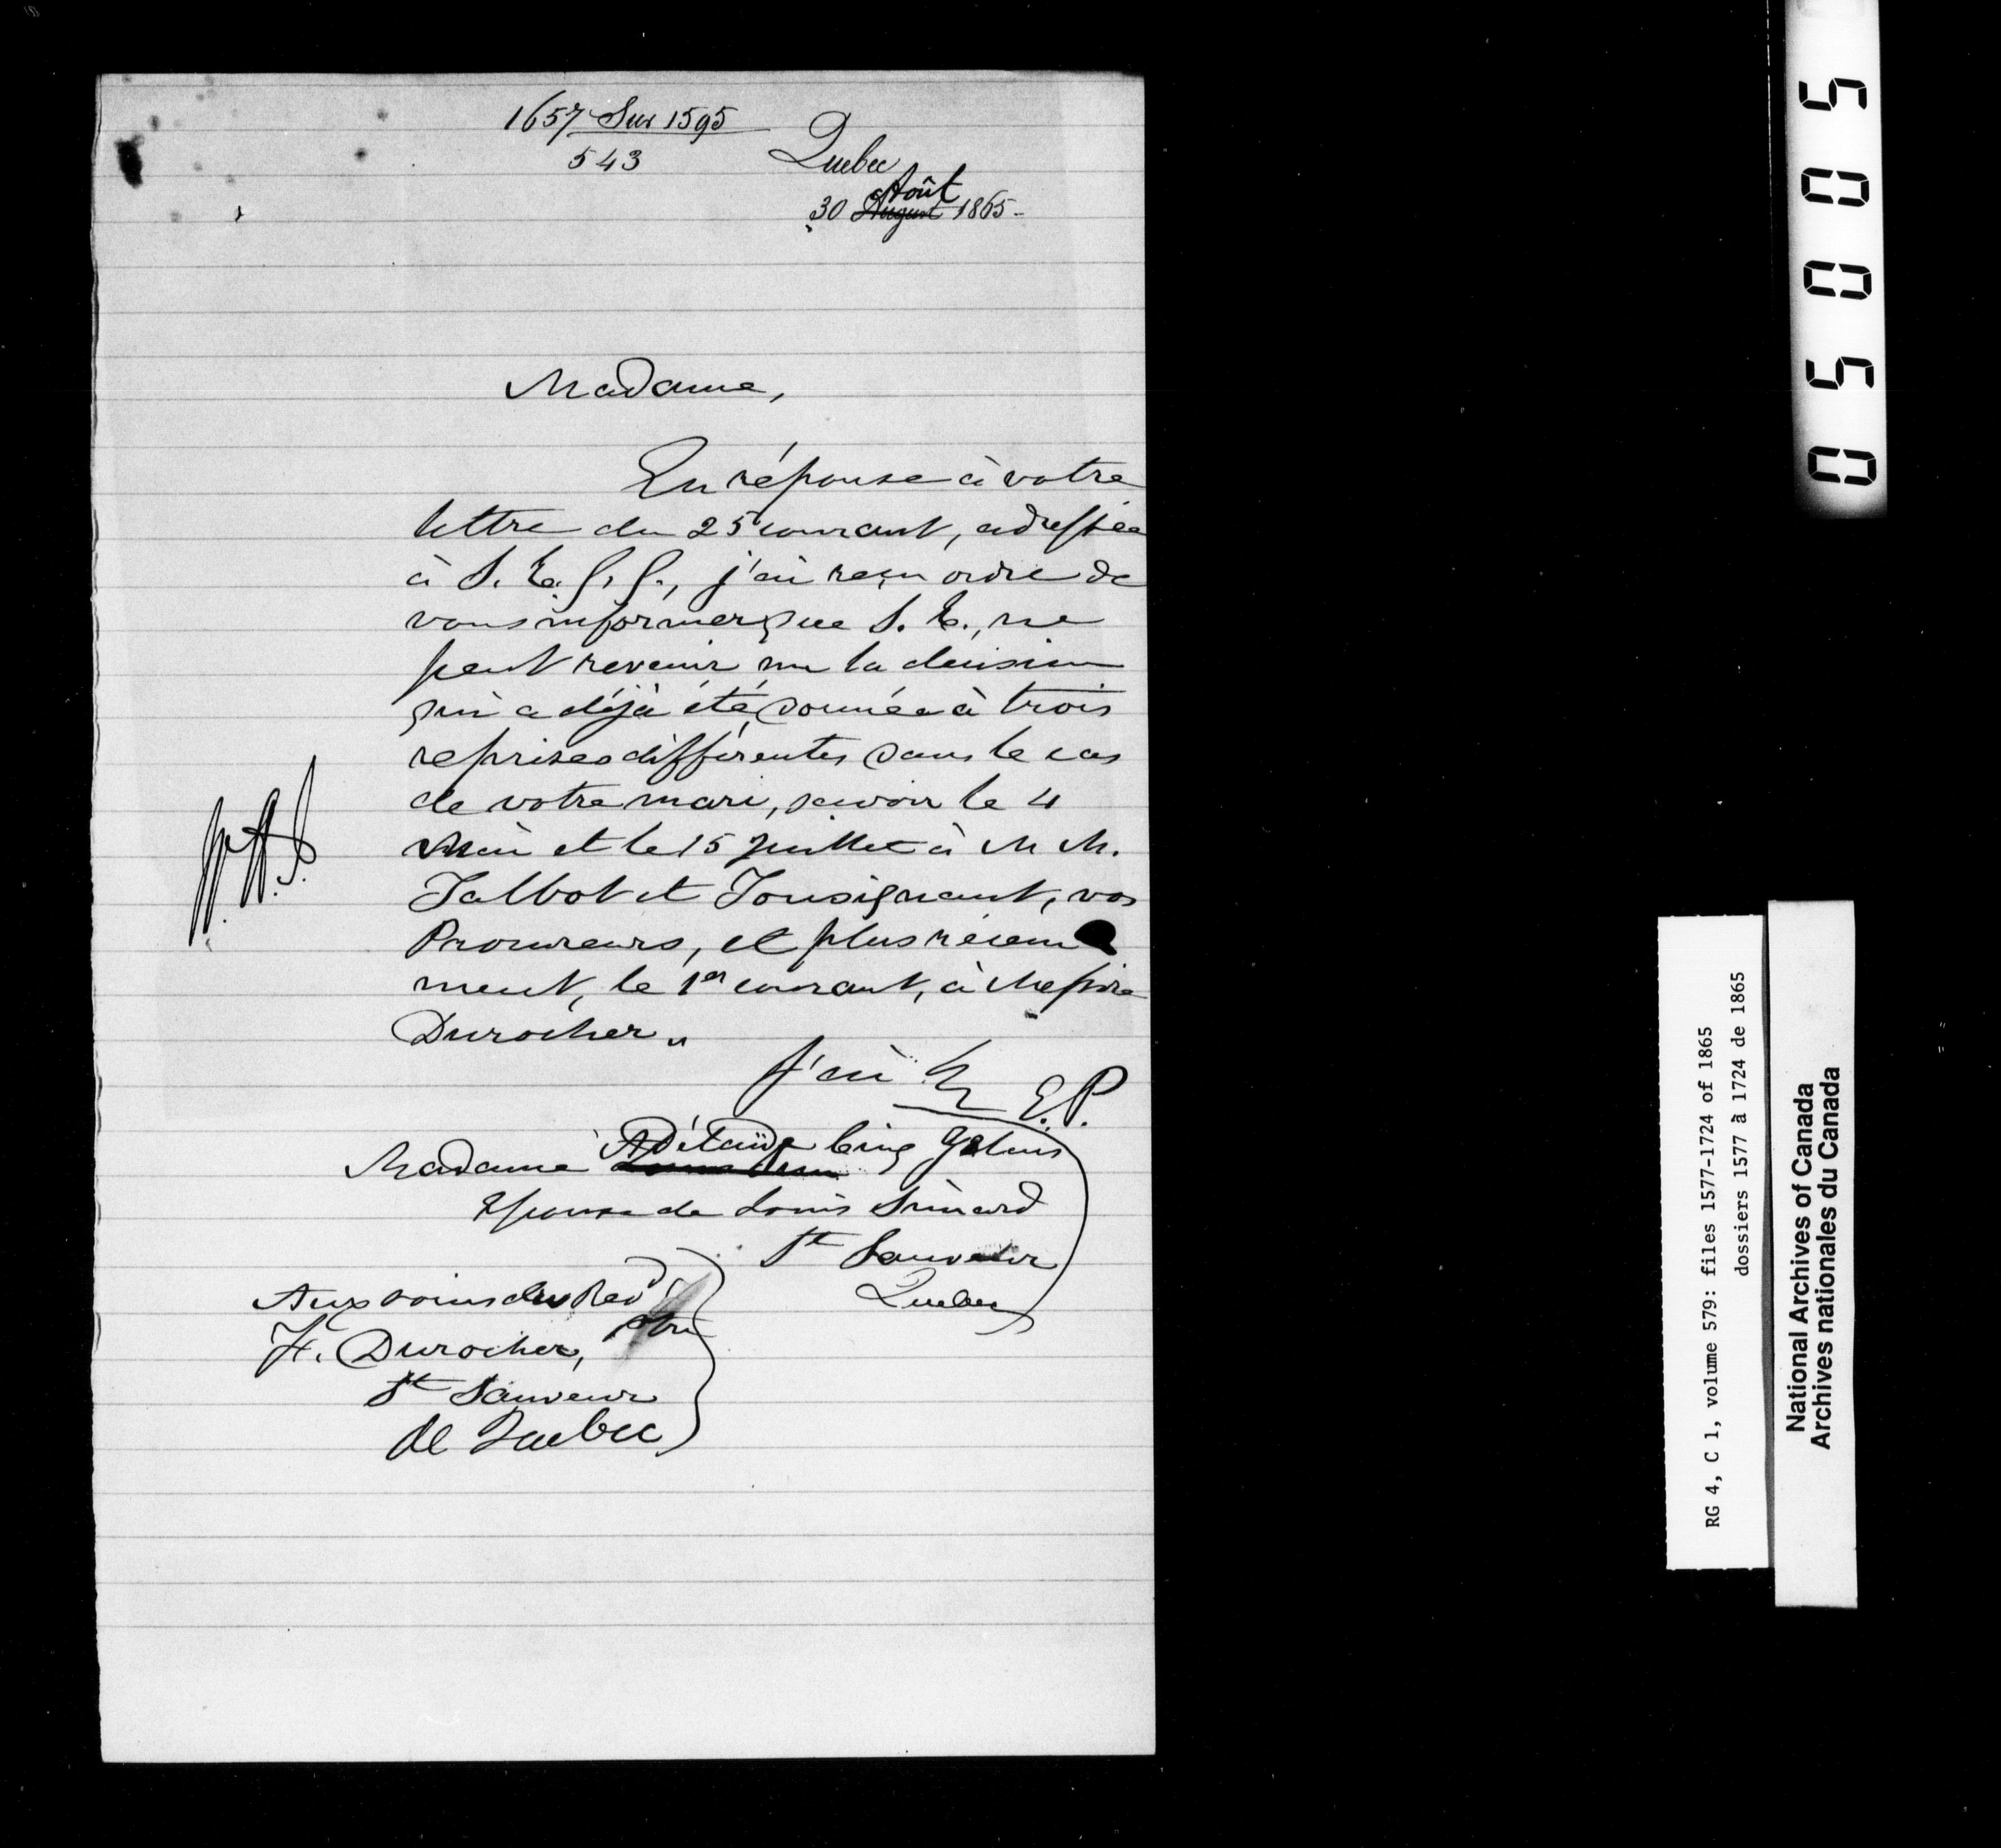 1657 Sur 1595
543
Quebec
Août
30 August 1865-
Madame,
En réponse à votre
lettre du 25 courant, adressée
à S. E. G. G., j'ai reçu ordre de
vous informer que S. E., ne
peut revenir sur la decision
qui a déjà été donnée à trois
reprises différentes dans le cas
de votre mari, savoir le 4
Mai et le 15 Juillet à M M.
Talbot et Tousignant, vos
Procureurs, et plus récem
ment, le 1er courant, à Messire
Durocher.
J'ai E. P.
Adélaïde Cinq
Madame
Epouse de Louis Simard
St Sauveur
Quebec
Aux soins du Revd
F. Durocher, Ptre
St Sauveur
de Quebec
50050
RG 4, C 1, volume 579: files 1577-1724 of 1865
dossiers 1577 à 1724 de 1865
National Archives of Canada
Archives nationales du Canada